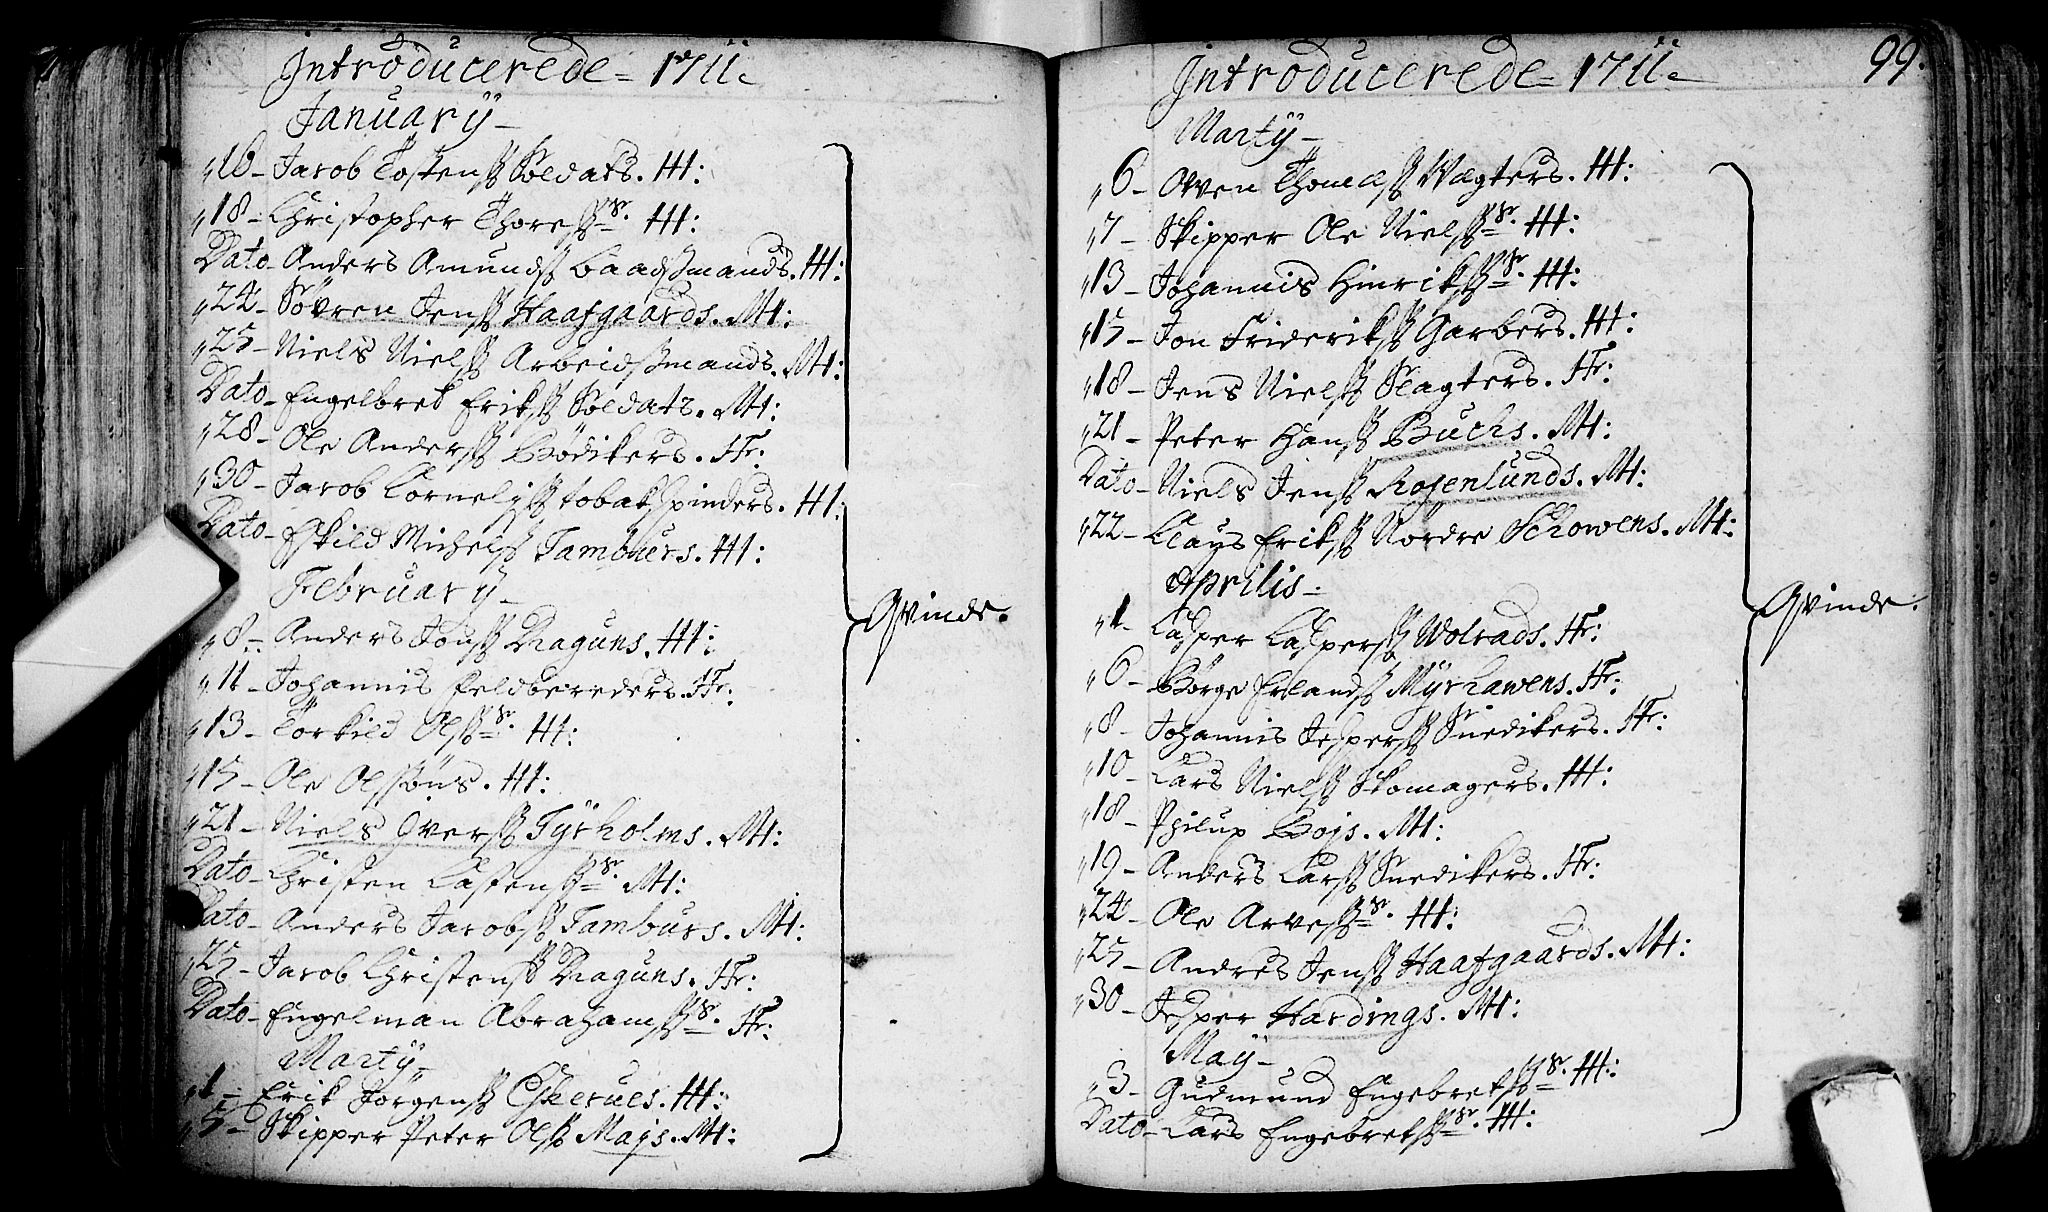 Introducerede = 1711.
January
16 - Jacob Tostenss Soldats. H:
18 - Christopher Thoress Sr. H:
Dato - Anders Amundss Baadssmands. H:
24 - Sövren Jenss Haafgaards. M:
25 - Niels Nielss Arbeidssmands. M:
Dato - Engelbret Erikss Soldats. M:
28 - Ole Anderss Bödikers. Hr:
30 - Jacob Cornelyss tobakspinders. H:
Dato - Eskild Michelss Tambuers. H:
February
8 - Anders Jonss Draguns. H:
11 - Johannis Feldbereders. Hr:
13 - Törkild Olss Sr. H:
15 - Ole Olssöns. H:
21 - Niels Iverss Tyrholms. M:
Dato - Christen Castenss Sr. M:
Dato - Anders Jacobss Tamburs. M:
25 - Jacob Christenss Draguns. Hr:
Dato - Engelman Abrahamss Sr. Hr:
Marty
1 - Erik Jörgenss H:
5 - Skipper Peter Olss Majs. M:
Qvinde.
Introducerede = 1711.
99.
Marty
6 - Owen Thomæss Wægters. H:
7 - Skipper Ole Nielss Sr. H:
13 - Johannis Hinrikss Sr. H:
15 - Jon Friderikss Garbers. H:
18 - Jens Nielss Slagters. Hr:
21 - Peter Hanss Buchs. M:
Dato - Niels Jenss Rosenlunds. M:
22 - Clays Erikss Nördre Schowens. M:
Aprilis
1 - Casper Casperss Wolrads. Hr:
6 - Börge Erlandss Myrhawens. Hr:
8 - Johannis Jesperss Snedikers. Hr:
10 - Lars Nielss Skomagers. H:
18 - Philup Bojs. M:
19 - Anders Larss Snedikers. Hr:
24 - Ole Arvess Sr. H:
25 - Andres Jenss Haafgaards. M:
30 - Jesper Hardings. M:
May
3 - Gudmund Engebretss Sr. H:
Dato - Lars Engebretss Sr. H:
Qvinde.